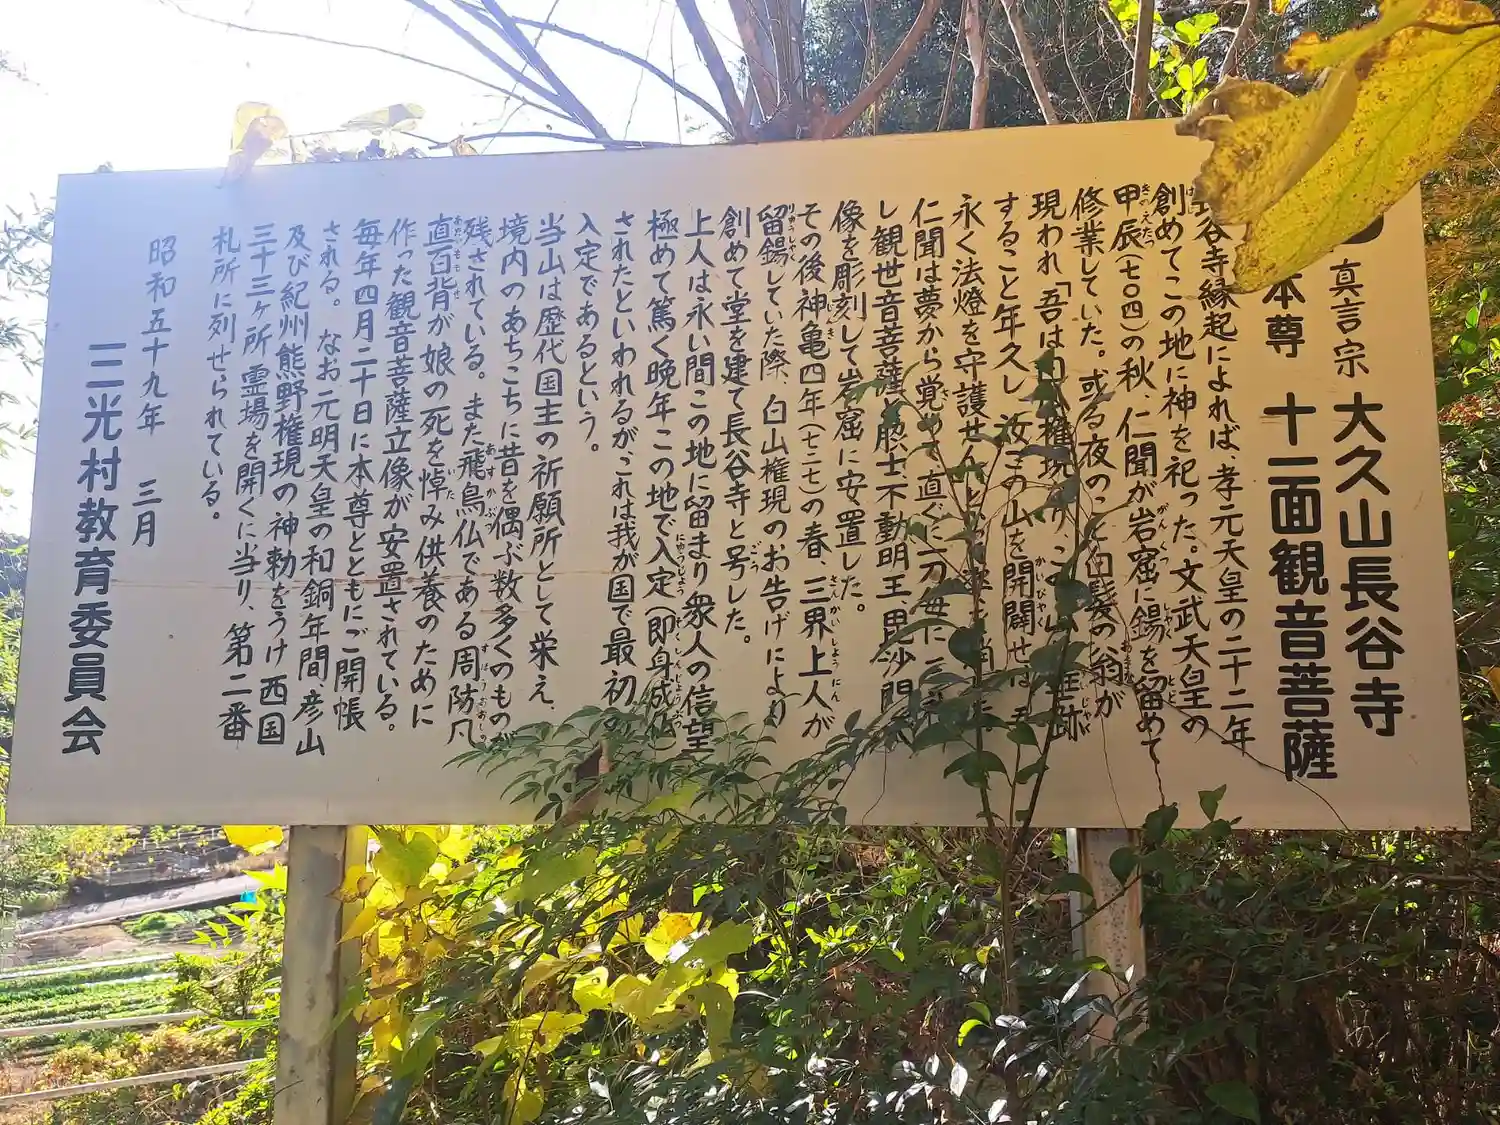 真言宗 大久山長谷寺
本尊 十一面観音菩薩
谷寺縁起によれば、孝元天皇の二十二年
創めてこの地に神を祀った。文武天皇の
甲辰(七〇四)の秋、仁聞が岩窟に錫を留めて
修業していた。或る夜のこと白髪の翁が
現われ、「吾は 権現
すること年久し、汝 この山を開闢せば、吾
永く法燈を守護せん
仁聞は夢から覚めて直ぐに一刀毎に三礼
し観世音菩薩と脇士不動明王毘沙門天
像を彫刻して岩窟に安置した。
その後神亀四年(七二七)の春、三界上人が
留錫していた際、白山権現のお告げにより
創めて堂を建て長谷寺と号した。
上人は永い間この地に留まり衆人の信望
極めて篤く晩年この地で入定(即身成仏
されたといわれるが、これは我が国で最初の
入定であるという。
当山は歴代国主の祈願所として栄え、
境内のあちこちに昔を偶ぶ数多くのものが
残されている。また飛鳥仏である周防凡
直百背が娘の死を悼み供養のために
作った観音菩薩立像が安置されている。
毎年四月二十日に本尊とともにご開帳
される。なお元明天皇の和銅年間、彦山
及び紀州熊野権現の神勅をうけ西国
三十三ヶ所霊場を開くに当り、第二番
札所に列せられている。
昭和五十九年 三月
三光村教育委員会